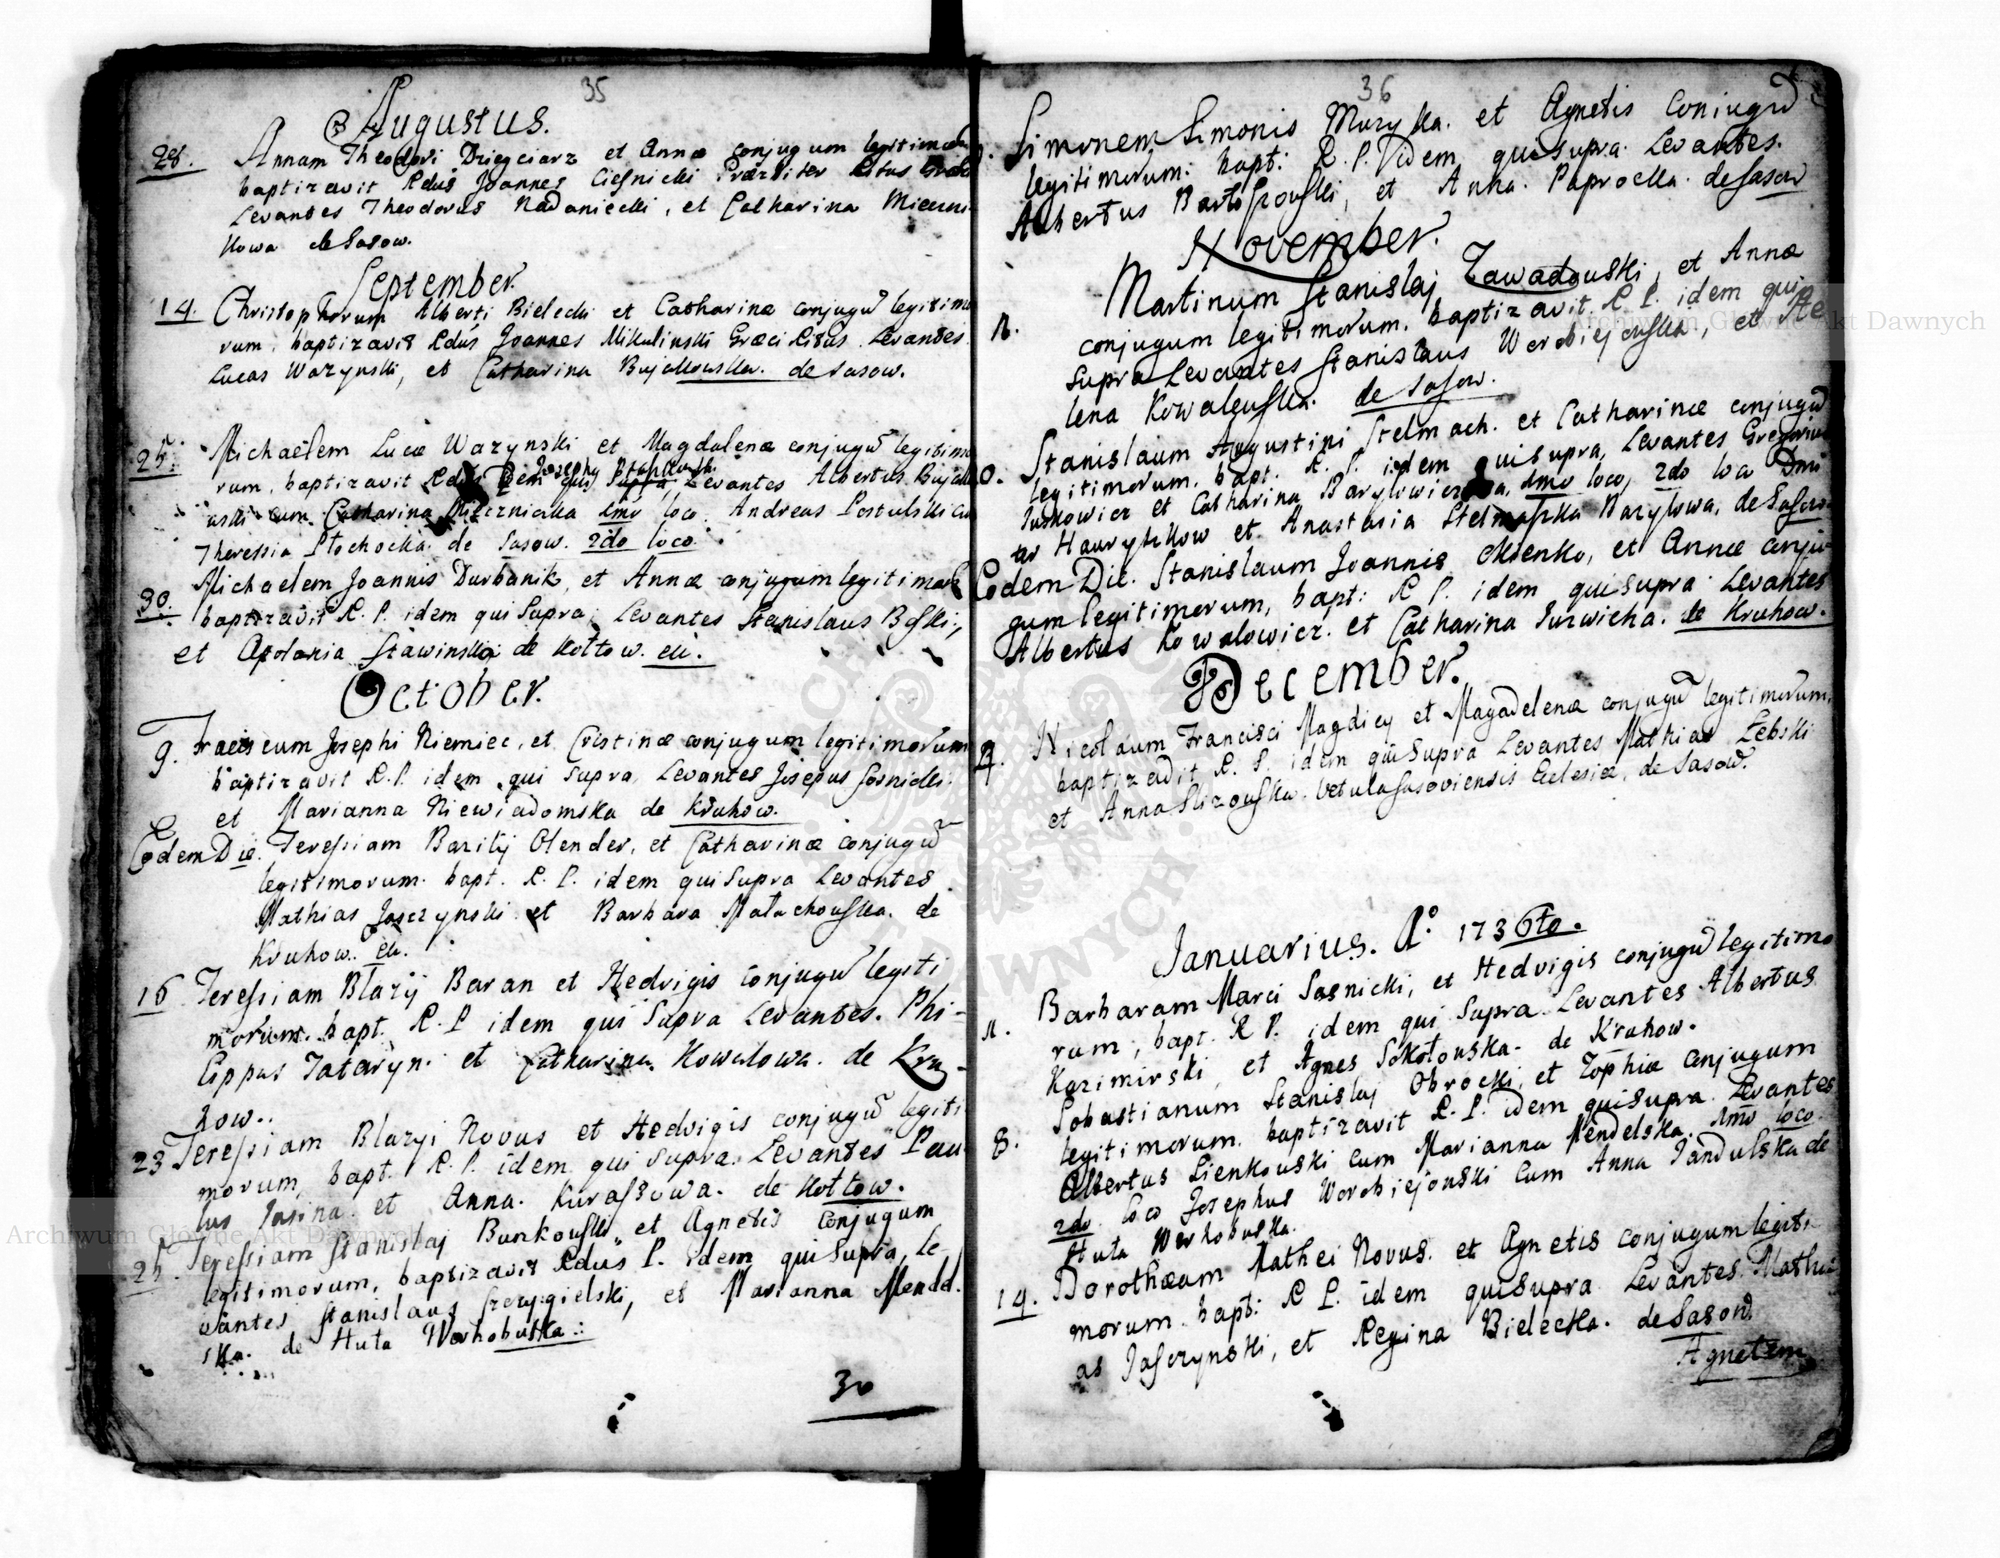 35
Augustus.
28. Annam Theodori Dziegciarz et Annæ conjugum legitimorum
baptizavit Rdus Joannes Cieſnicki Præzbiter Ritus Græci
Levantes Theodorus Nadanieclli, et Catharina Miecuni-
kowa de Sasow.
September.
14. Christophorum Alberti Bielecki et Catharinæ conjugũ legitimo
rum, baptizavit Rdus Joannes Mikulinski Græci Ritus. Levantes
Lucas Wazynski, et Catharina Bujakowska. de Sasow.
25. Michaëlem Lucæ Wazynski et Magdalenæ conjugũ legitimo
rum, baptizavit Rdus Levantes Albertus Bujako
uski cum Catharina Miecznicka 1mo loco. Andreas Postulski cu
Theressia Płochocka de Sasow. 2do loco.
30. Michaelem Joannis Durbanik, et Annæ conjugum legitimorũ
baptizavit R. P. idem qui supra, Levantes Stanislaus Beſki,
et Apolonia Stawinska de Kołtow. eii.
October.
9. Franciscum Josephi Niemiec, et Cristinæ conjugum legitimorum
baptizavit R. P. idem qui supra, Levantes Josepus Sosnicki
et Marianna Niewiadomska de Kruhow.
Eodem Die. Tereſsiam Bazilij Olender, et Catharinæ conjugũ
legitimorum. bapt. R. P. idem qui supra Levantes
Mathias Jasczynski et Barbara Małachouſka. de
Kruhow. eii.
16. Tereſsiam Blazij Baran et Hedvigis conjugũ legiti
morum. bapt. R. P. idem qui supra Levantes. Phi-
lippus Tataryn. et Catharina Kowalowa. de Kru-
how..
23 Tereſsiam Blazyi Novus et Hedvigis conjugũ legiti
morum, bapt. R. P. idem qui supra. Levantes Pau
lus Jasina et Anna. Kuraſsowa. de Kołtow.
25. Tereſsiam Stanislaj Bunkouſki, et Agnetis Conjugum
legitimorum, baptizavit Rdus P. idem qui supra, Le
vantes Stanislaus Szczygielski, et Marianna Mendel
ska. de Huta Werhobuska.:
30
36
Simonem Simonis Muzyka. et Agnetis Conjugũ
legitimorum. bapt: R. P. Idem qui supra. Levantes.
Albertus Bartoſzouſki, et Anna. Paprocka. de Sasow
November.
11. Martinum Stanislaj Zawadouski, et Annæ
conjugum legitimorum. baptizavit. R. P. idem qui
supra Levantes Stanislaus Worobiejouſka, et He
lena Kowaleuſka. de Sasow.
0. Stanislaum Augustini Stelmach. et Catharinæ conjugũ
legitimorum. bapt. R. P. idem qui supra, Levantes Gregorius
Juskowicz et Catharina Barylowiczowa, 1mo loco, 2do loco Dmi
Hauryſzkow et Anastasia Stelmaſzka Barylowa, de Sasow.
Eodem Die. Stanislaum Joannis Okienko, et Annæ conju
gum legitimorum, bapt: R P. idem qui supra Levantes
Albertus Kowalowicz. et Catharina Surwicha. de Kruhow.
December.
4. Nicolaum Francisci Magdicy et Magadelenæ conjugũ legitimorum,
baptizavit R. P. idem qui supra Levantes Mathias Zebski
et Anna Slizouſka. vetula Sasoviensis Eclesiæ, de Sasow.
Januarius. Aº 1736to.
11. Barbaram Marci Sosnicki, et Hedvigis conjugũ legitimo
rum, bapt. R P. idem qui supra. Levantes Albertus
Kazimirski, et Agnes Sokołouska. de Kruhow.
8. Sobastianum Stanislaj Obrocki, et Zophiæ Conjugum
legitimorum, baptizavit R. P. idem qui supra. Levantes
Albertus Sienkouski cum Marianna Mendelska. 1mo loco.
2do loco Josephus Worobiejouski Cum Anna Jandulska de
Huta Werhobuska.
14. Dorothæam Mathei Novus. et Agnetis conjugum legiti
morum. bapt: R P. idem qui supra. Levantes Mathi-
as Jaſczynski, et Regina Bielecka. de Sasow
Agnetem
Archiwum Główne Akt Dawnych
Archiwum Główne Akt Dawnych